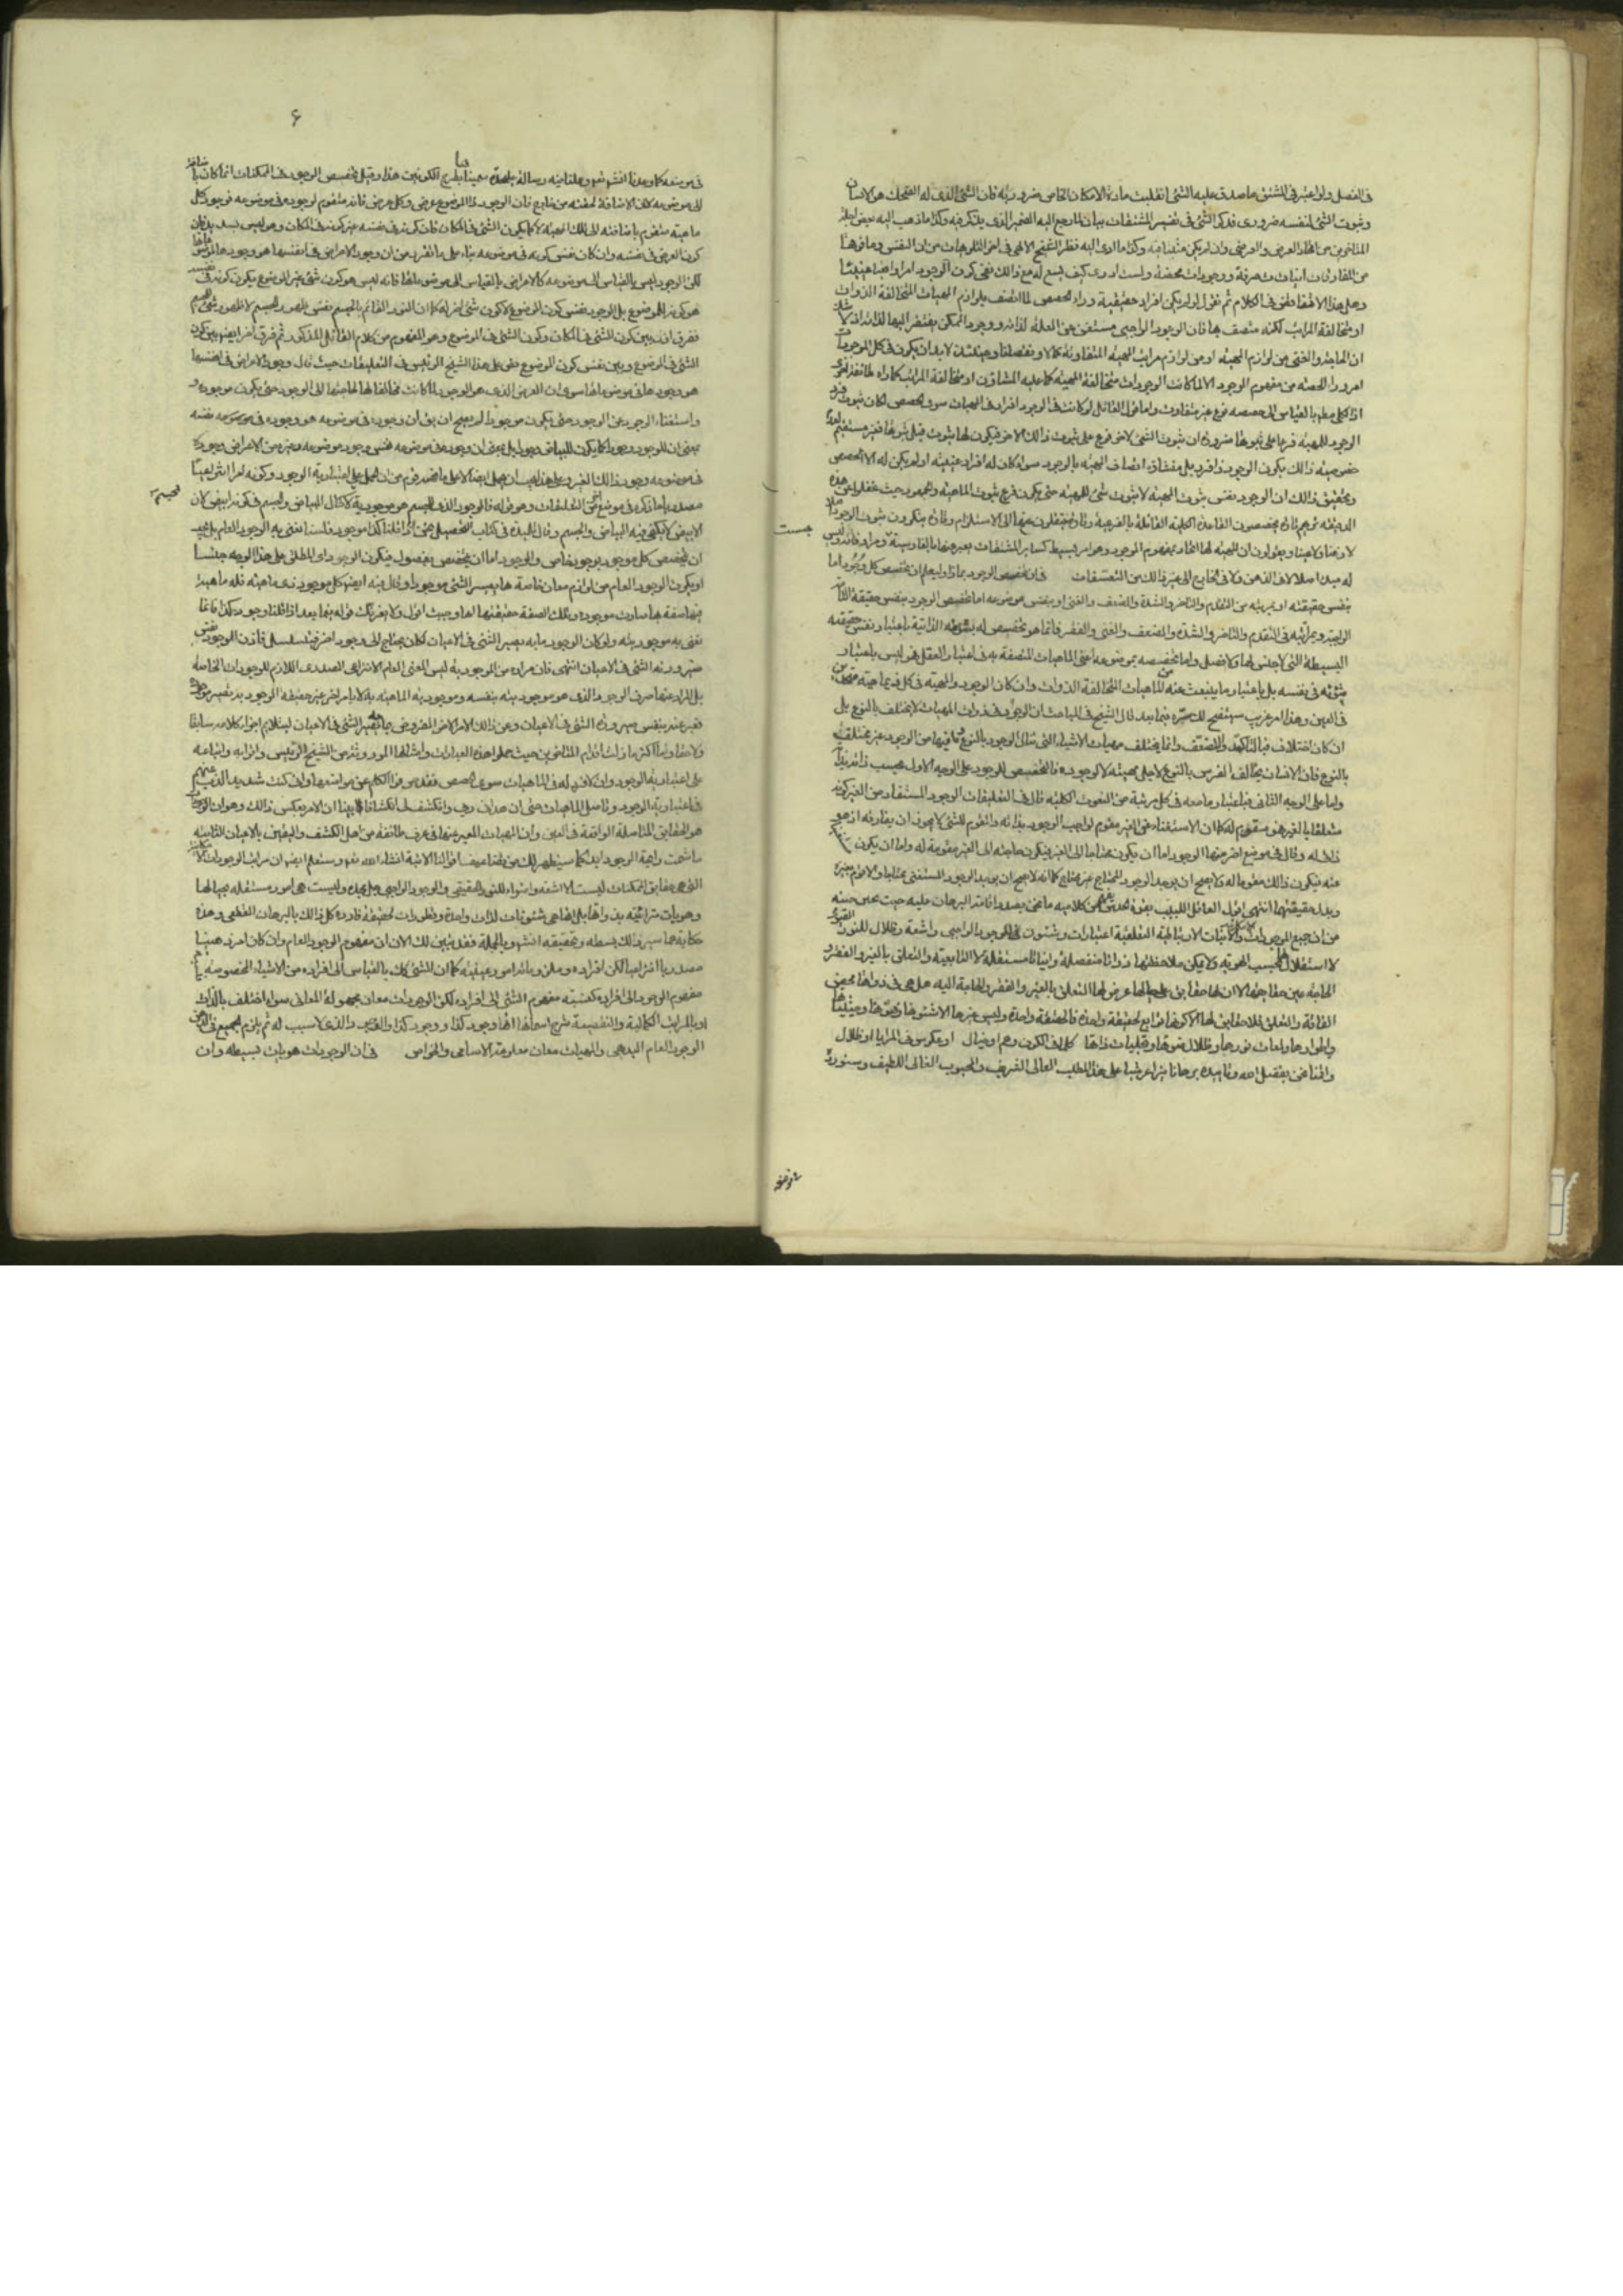 فى الفصل ولو اعتبر فى المشتق ما صدق عليه الشئ انقلبت مادة الامكان الخاص ضرورية فان الشئ الذى له الضحك هو الانسان
وثبوت الشئ لنفسه ضرورى فذكر الشئ فى تفسير المشتقات بيان لما رجع اليه الضمير الذى يذكر فيه وكذا ما ذهب اليه بعض اجلة
المتاخرين من اتحاد العرض والعرضى وان لم يكن مثبتا فيه وكذا ما ادى اليه نظر الشيخ الالهى فى اخر التلويحات من ان النفس وما فوقها
من المفارقات انيات صرفة ووجودات محضة ولست ادرى كيف يسع له مع ذلك نفى كون الوجود امرا واقعا عينيا
وهل هذا الا تناقض فى الكلام ثم نقول لو لم يكن للوجود افراد حقيقية وراء الحصص لما اتصف بلوازم المهيات المتخالفة الذوات
او متخالفة المراتب لكنه متصف بها فان الوجود الواجبى مستغن عن العلة لذاته ووجود الممكن مفتقر اليها لذاته اذ لا شك
ان الحاجة والغنى من لوازم المهية او من لوازم مراتب المهية المتفاوتة كمالا ونقصانا وحينئذ لا بد ان يكون فى كل من الموجودات
امر وراء الحصة من مفهوم الوجود والا لما كانت الوجودات متخالفة المهية كما عليه المشاؤون او متخالفة المراتب كما راه طائفة اخرى
اذ الكلى مطلقا بالقياس الى حصصه نوع غير متفاوت واما قول القائل لو كانت للوجود افراد فى المهيات سوى الحصص لكان ثبوت فرد
الوجود للمهية فرعا على ثبوتها ضرورة ان ثبوت الشئ لاخر فرع على ثبوت ذلك الاخر فيكون لها ثبوت قبل ثبوتها فغير مستقيم لعدم
خصوصية ذلك بكون الوجود ذا فرد بل منشاؤه اتصاف المهية بالوجود سواء كان له افراد عينية او لم يكن له الا الحصص
وتحقيق ذلك ان الوجود نفس ثبوت المهية لا ثبوت شئ للمهية حتى يكون فرع ثبوت المهية والجمهور حيث غفلوا عن هذه
الدقيقة تراهم تارة يخصصون القاعدة الكلية القائلة بالفرعية وتارة ينتقلون عنها الى الاستلزام وتارة ينكرون ثبوت الوجود
لا ذهنا ولا عينا ويقولون ان المهية لها اتحاد بمفهوم الموجود وهو امر بسيط كسائر المشتقات يعبر عنها بالفارسية ومرادفاته وليس
هست
له مبدا اصلا لا فى الذهن ولا فى الخارج الى غير ذلك من التعسفات فى ان تخصص الوجود بماذا وليعلم ان تخصص كل وجود اما
بنفس حقيقته او بمرتبة من التقدم والتاخر والشدة والضعف والغنى او بنفس موضوعه اما تخصيص الوجود بنفس حقيقته التامة
الواجبية وبمراتبه فى التقدم والتاخر والشدة والضعف والغنى والفقر فانما هو تخصيص له بشؤنه الذاتية باعتبار نفس حقيقته
البسيطة التى لا جنس لها ولا فصل واما تخصيصه بموضوعه اعنى الماهيات المتصفة به فى اعتبار العقل فهو ليس باعتبار
شؤنه فى نفسه بل باعتبار ما ينبعث عنه من الماهيات المتخالفة الذوات وان كان الوجود والمهية فى كل ذى ماهية متحدين
فى العين وهذا امر غريب سيتضح لك سره فيما بعد قال الشيخ فى المباحثات ان الوجود فى ذوات المهيات لا يختلف بالنوع بل
ان كان اختلاف فبالتاكد والضعف وانما يختلف مهيات الاشياء التى تنال الوجود بالنوع وما فيها من الوجود غير مختلف
بالنوع فان الانسان يخالف الفرس بالنوع لاجل مهيته لا لوجوده فالتخصيص للوجود على الوجه الاول بحسب ذاته بذاته
واما على الوجه الثانى فباعتبار ما معه فى كل مرتبة من النعوت الكلية قال فى التعليقات الوجود المستفاد من الغير كونه
متعلقا بالغير هو مقوم له كما ان الاستغناء عن الغير مقوم لواجب الوجود بذاته والمقوم للشئ لا يجوز ان يفارقه اذ هو
ذاتى له وقال فى موضع اخر منها الوجود اما ان يكون محتاجا الى الغير فيكون حاجته الى الغير مقومة له واما ان يكون مستغنيا
عنه فيكون ذلك مقوما له ولا يصح ان يوجد الوجود المحتاج غير محتاج كما انه لا يصح ان يوجد الوجود المستغنى محتاجا والا قوم بغيره
وبدل حقيقتهما انتهى اقول العاقل اللبيب بقوة الحدس يفهم من كلامه ما نحن بصدد اقامة البرهان عليه حيث يحين حينه
من ان جميع الوجودات الامكانية والانيات الارتباطية التعلقية اعتبارات وشئون للوجود الواجبى واشعة وظلال للنور القيومى
لا استقلال لها بحسب الهوية ولا يمكن ملاحظتها ذواتا منفصلة وانيات مستقلة لان التابعية والتعلق بالغير والفقر و
الحاجة عين حقائقها لا ان لها حقائق على حيالها عرض لها التعلق بالغير والفقر والحاجة اليه بل هى فى ذواتها محض
الفاقة والتعلق فلا حقائق لها الا كونها توابع لحقيقة واحدة فالحقيقة واحدة وليس غيرها الا شئونها وفنونها وحيثياتها
واطوارها ولمعات نورها وظلال ضوئها وتجليات ذاتها كل ما فى الكون وهم او خيال او عكوس فى المرايا او ظلال
واقمنا نحن بفضل الله وتاييده برهانا نيرا عرشيا على هذا المطلب العالى الشريف والمحبوب الغالى اللطيف وسنورده
فى موضعه
۶
فى موضعه كما وعدنا انشه تعه وعملنا فيه رسالة على حدة سميناها بطرح الكونين هذا وقيل تخصص الوجود فى الممكنات انما كان باضافته
الى موضوعه لا ان الاضافة لحقته من خارج فان الوجود ذا الموضوع عرض وكل عرض فانه متقوم بوجوده فى موضوعه فوجود كل
ماهية متقوم باضافته الى تلك المهية لا كما يكون الشئ فى المكان فان كونه فى نفسه غير كونه فى المكان وهو ليس بسديد فان
كون العرض فى نفسه وان كان نفس كونه فى موضوعه بناء على ما تقرر من ان وجود الاعراض فى انفسها هو وجودها لموضوعاتها
لكن الوجود ليس بالقياس الى موضوعه كالاعراض بالقياس الى موضوعاتها فانه ليس هو كون شئ غير الموضوع يكون كونه فى نفسه
هو كونه للموضوع بل الوجود نفس كون الموضوع لا كون شئ اخر له كما ان النور القائم بالجسم نفس ظهور الجسم لا ظهور شئ للجسم
ففرق اذن بين كون الشئ فى المكان وكون الشئ فى الموضوع وهو المفهوم من كلام القائل المذكور ثم فرق اخر ايضا بين كون
الشئ فى الموضوع وبين نفس كون الموضوع نص على هذا الشيخ الرئيس فى التعليقات حيث قال وجود الاعراض فى انفسها
هو وجودها فى موضوعاتها سوى ان العرض الذى هو الوجود لما كانت مخالفا لها لحاجتها الى الوجود حتى يكون موجودة و
واستغناء الوجود عن الوجود حتى يكون موجودا لم يصح ان يق ان وجوده فى موضوعه هو وجوده فى نفسه
بمعنى ان للوجود وجودا كما يكون للبياض وجود بل بمعنى ان وجوده فى موضوعه نفس وجود موضوعه وغيره من الاعراض وجوده
فى موضوعه وجود ذلك الغير وعلى هذا يجب ان يحمل ايضا لا على ما فهمه قوم من ان حمله على اعتبارية الوجود وكونه امرا انتزاعيا
مصدريا ما ذكره فى موضع اخر من التعليقات وهو قوله فالوجود الذى للجسم هو موجودية الجسم لا كحال البياض والجسم فى كونه ابيض لان
الابيض لا يكفى فيه البياض والجسم وقال تلميذه فى كتاب التحصيل نحن اذا قلنا كذا موجود فلسنا نعنى به الوجود العام بل يجب
ان يتخصص كل موجود بوجود خاص والوجود اما ان يتخصص بفصول فيكون الوجود اى المطلق على هذا الوجه جنسا
او يكون الوجود العام من لوازم معان خاصة بها يصير الشئ موجودا وقال فيه ايضا كل موجود ذى ماهية فله ماهية
فيها صفة بها صارت موجودة وتلك الصفة حقيقتها انها وجبت اقول ولا يغرنك قوله فيما بعد اذا قلنا وجود كذا فانما
نعنى به موجوديته ولو كان الوجود ما به يصير الشئ فى الاعيان لكان يحتاج الى وجود اخر فيتسلسل فاذن الوجود نفس
صيرورة الشئ فى الاعيان انتهى فان مراده من الموجودية ليس المعنى العام الانتزاعى المصدرى اللازم للوجودات الخاصة
بل المراد منها صرف الوجود الذى هو موجوديته بنفسه وموجودية الماهية به لا بامر اخر غير حقيقة الوجود به تصير موجودة
فعبر عنه بنفس صيرورة الشئ فى الاعيان وعن ذلك الامر الاخر المفروض بما به يصير الشئ فى الاعيان ليتلائم اجزاء كلامه سابقا
ولاحقا وما اكثر ما زلت اقدام المتاخرين حيث حملوا هذه العبارات وامثالها الموروثة من الشيخ الرئيس واترابه واتباعه
على اعتبارية الوجود وان لا فرد له فى الماهيات سوى الحصص فقد حرفوا الكلم عن مواضعها وانى كنت شديد الذب عنهم
فى اعتبارية الوجود وتاصل الماهيات حتى ان هدانى ربى وانكشف لى انكشافا بينا ان الامر بعكس ذلك وهو ان الوجودات
هو الحقايق المتاصلة الواقعة فى العين وان المهيات المعبر عنها فى عرف طائفة من اهل الكشف واليقين بالاعيان الثابتة
ما شمت رايحة الوجود ابدا كما سيظهر لك من تضاعيف اقوالنا الاتية انشاء الله تعه وستعلم ايضا ان مراتب الوجودات الامكانية
التى هى حقايق الممكنات ليست الا اشعة واضواء للنور الحقيقى والوجود الواجبى جل مجده وليست هى امور مستقلة بحيالها
وهويات متراسة بذواتها بل انما هى شئونات لذات واحدة وتطورات لحقيقة فاردة كل ذلك بالبرهان القطعى وهذه
حكاية عما سيرد لك بسطه وتحقيقه انشه وبالجملة فقد تبين لك الان ان مفهوم الوجود العام وان كان امرا ذهنيا
مصدريا انتزاعيا لكن افراده وملزوماته امور عينية كما ان الشئ كك بالقياس الى افراده من الاشياء المخصوصة
مفهوم الوجود الى افراده كنسبة مفهوم الشئ الى افراده لكن الوجودات معان مجهولة الاسامى سواء اختلفت بالذات
او بالمراتب الكمالية والنقصية شرح اسمائها انها وجود كذا ووجود كذا والوجود الذى لا سبب له ثم يلزم الجميع فى الذهن
الوجود العام البديهى والمهيات معان معلومة الاسامى والخواص فى ان الوجودات هويات بسيطة وان